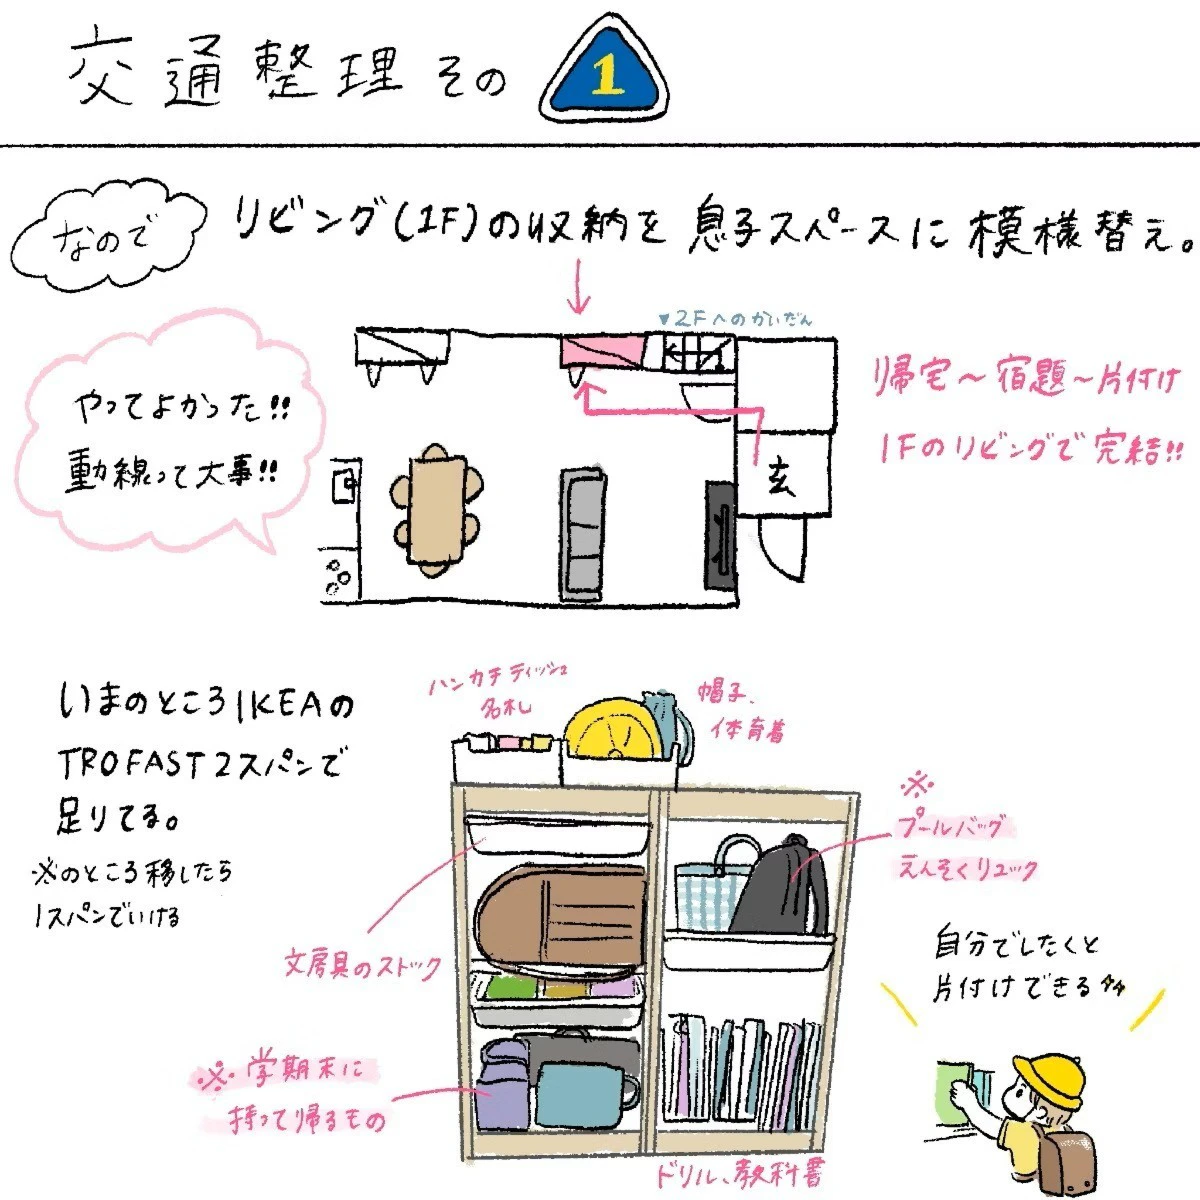 交通整理 その 1
なので
リビング(1F)の収納を 息子スペースに 模様替え。
▼2Fへのかいだん
やってよかった!!
動線って大事!!
帰宅〜宿題〜片付け
1Fのリビングで完結!!
玄
いまのところIKEAの
TROFAST 2スパンで
足りてる。
※のところ移したら
1スパンでいける
ハンカチ ティッシュ
名札
帽子、
体育着
※
プールバッグ
えんそくリュック
文房具のストック
自分でしたくと
片付けできる
※学期末に
持って帰るもの
ドリル、教科書